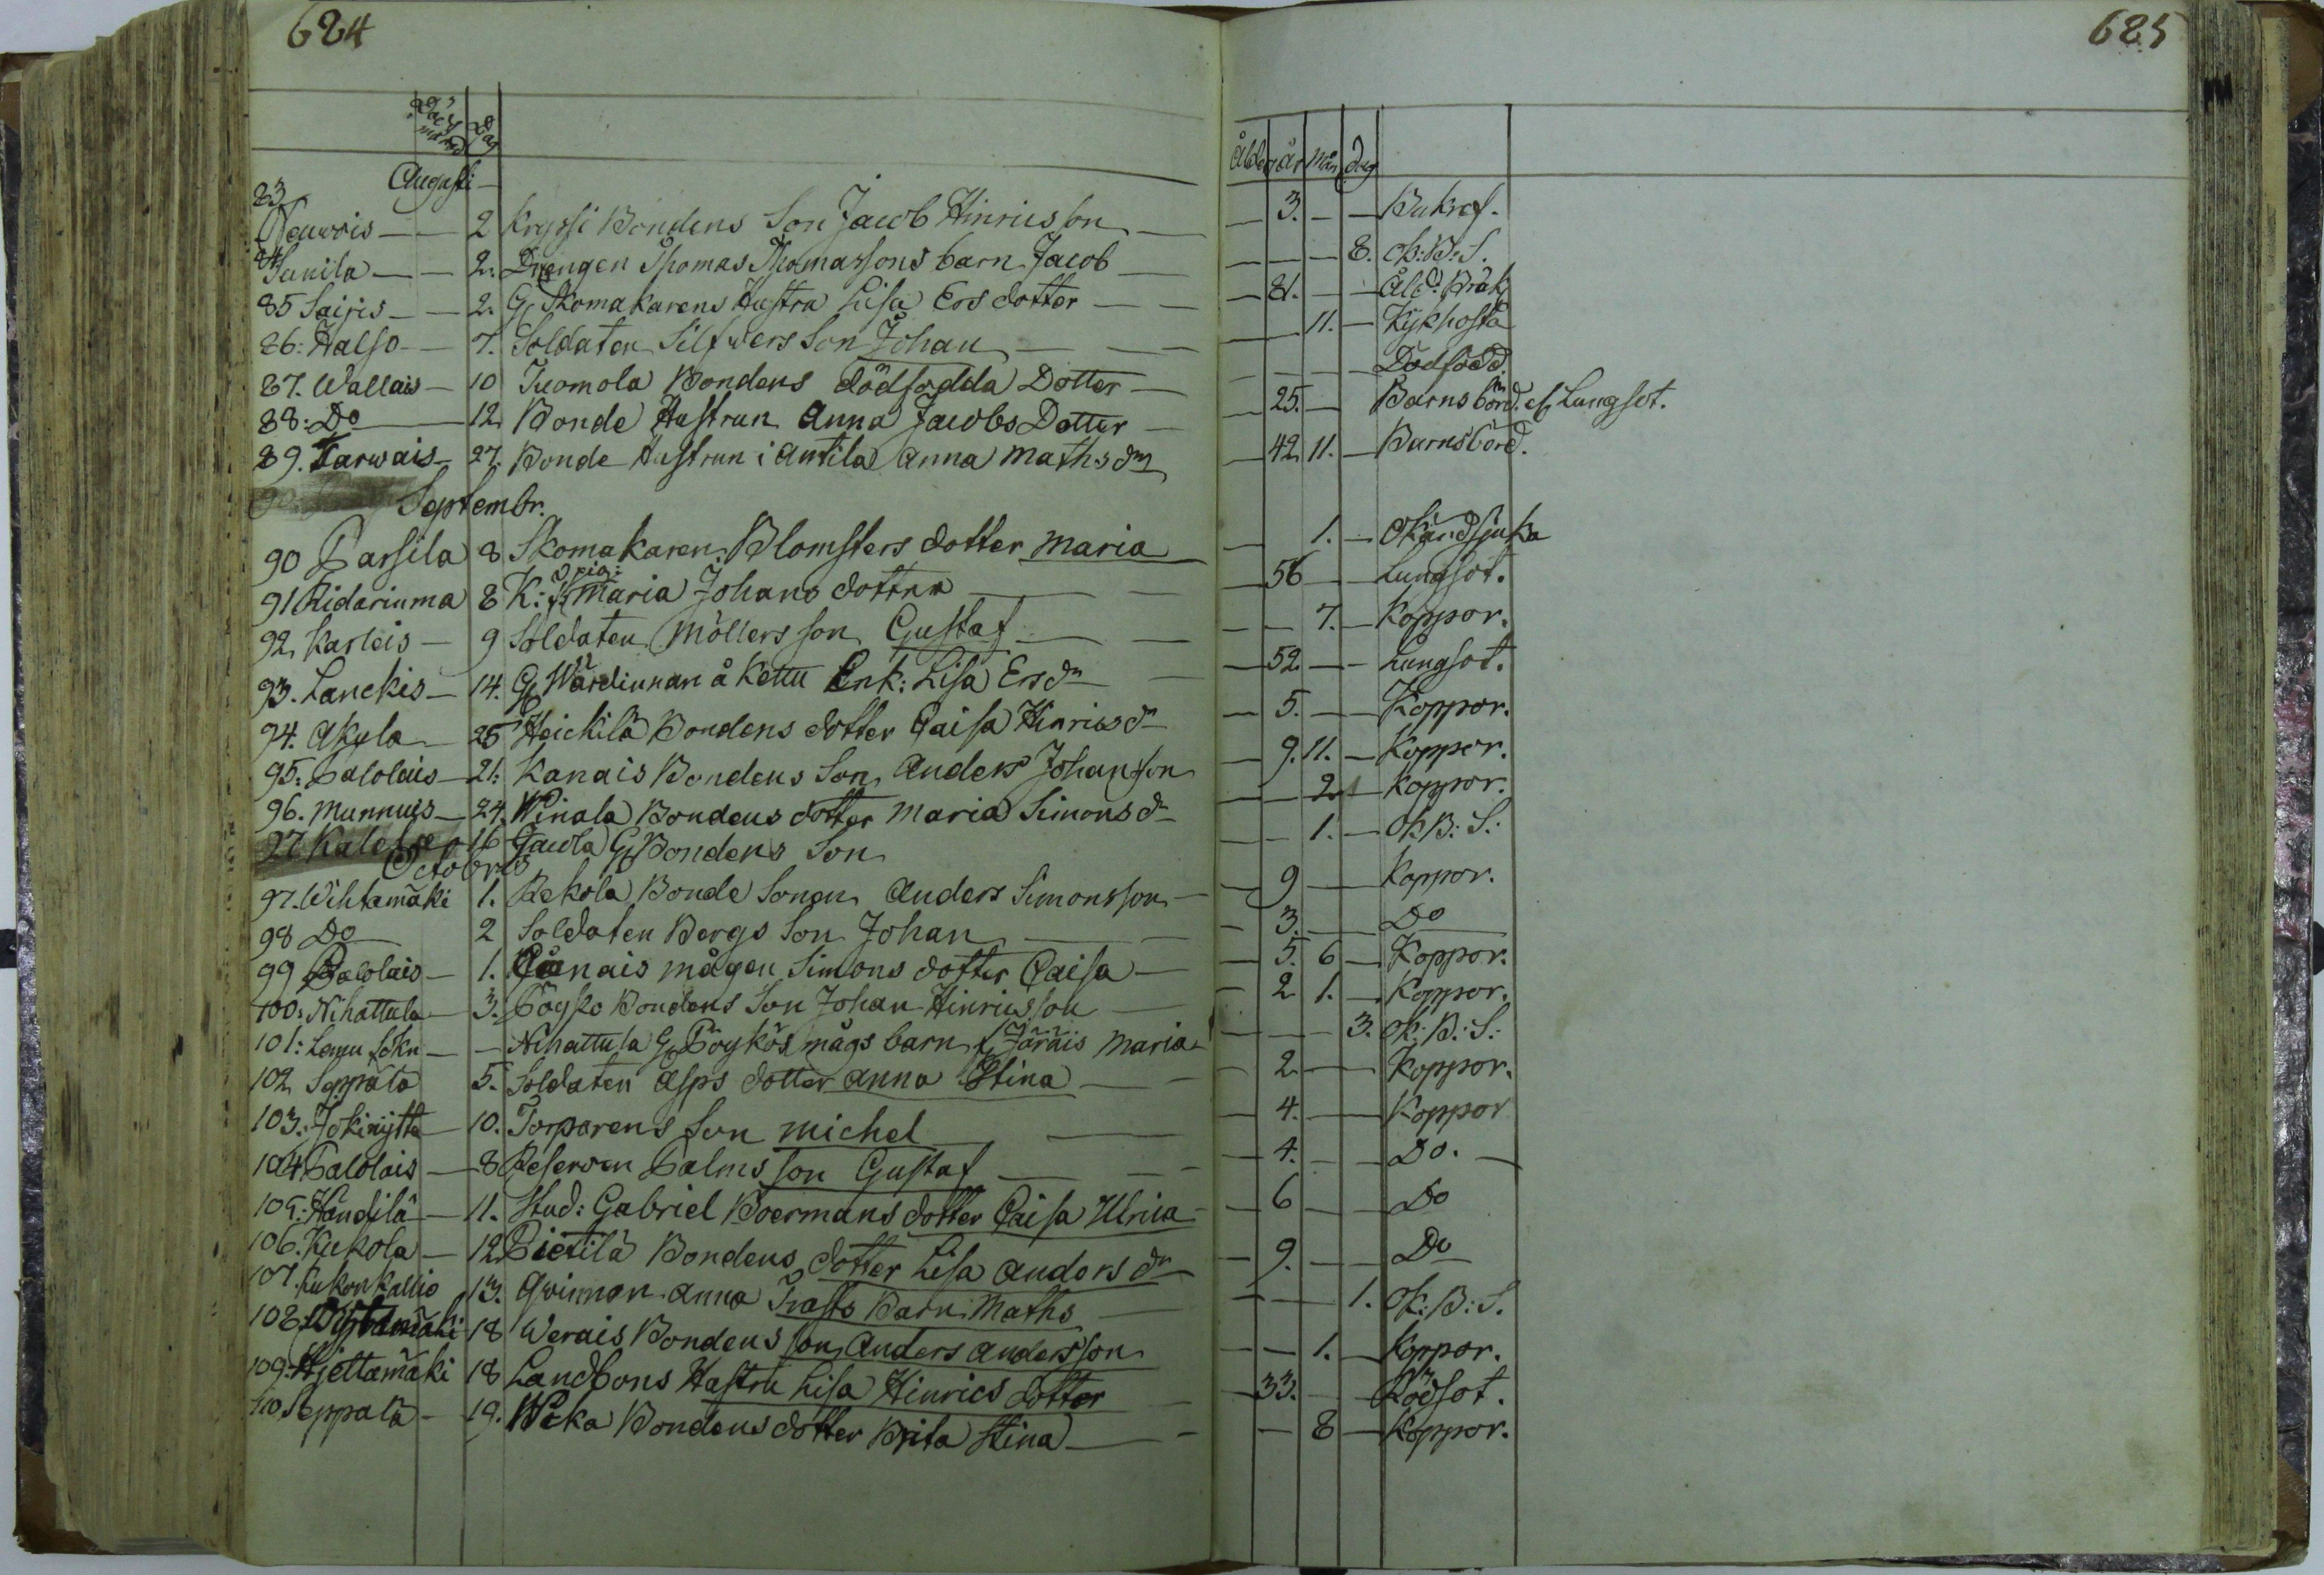 684 685
Dag
Ålder år Mån Dag
Augusti
83
Nouwois 2 Kryssi Bondens Son Jacob Hinricsson 3. Bukref.
84 Junila 2. Drengen Thomas Thomassons barn Jacob 8. Ok: B: S.
85 Saijis 2. G Skomakarens Hustru Lisa Ersdotter 81. Åld: Bräk
86: Halso 7. Soldaten Silfvers Son Johan 11. Kykhosta
87. Wallais 10 Tuomola Bondens dödfödda Dotter Dödfödd
88: Do 12. Bonde Hustrun Anna Jacobs Dotter 25. Barnsbörd. Lungsot.
89. Karwais 27. Bonde Hustrun i Antila Anna Mathsdr 42 11. Barnsbörd.
Septembr.
90 Parsila 8 Skomakaren Blomsters dotter Maria 1. Okänd sjuka
91 Ridariuma 8 K: pig: Maria Johans dotter 56 Lungsot.
92. Karleis 9 Soldaten Möllers son Gustaf 7. Koppor.
93. Lanckis 14. G Wärdinnan å Kettu Enk: Lisa Ersdr 52 Lungsot.
94. Akula 25 Heickilä Bondens dotter Caisa Hinricsdr 5. Koppor.
95: Palolais 21: Kanais Bondens Son Anders Johanson 9. 11. Koppor.
96. Munnuis 24. Winala Bondens dotter Maria Simonsdr 2 Koppor.
97 16 Jacola G Bondens Son 1. Ok B: S:
Octobris
97. Wihtamäki 1. Rekola Bonde Sonen Anders Simonsson 9 Koppor.
98 Do 2 Soldaten Bergs Son Johan 3. Do
99 Palolais 1. Cånais mågen Simons dotter Caisa 5. 6 Koppor.
100: Nihattula 3. Pöysko Bondens Son Johan Hinricsson 2 1. Koppor.
101: Lemu Sokn Nihattula G Pöykös mågs barn fr Järäis Maria 3. Ok: B: S:
102 Seppälä 5. Soldaten Asps dotter Anna Stina 2 Koppor.
103. Jokinytta 10. Torparens Son Michel 4. Koppor
104 Palolais 8 Reserven Palms son Gustaf 4. Do.
105: Handilä 11. Stud: Gabriel Boermans dotter Caisa Ulrica 6 Do
106. Kukola 12 Pietilä Bondens dotter Lisa Andersdr 9. Do
107. Kukonkallio 13. Qwinnan Anna Trasts Barn Maths 1. Ok: B: S.
108 18 Werais Bondens son Anders Andersson 1. Koppor.
109. Hjettamäki 18 Landbons Hustru Lisa Hinrics dotter 33. Rödsot.
110 Seppälä 19. Wieka Bondens dotter Brita Stina 8 Koppor.